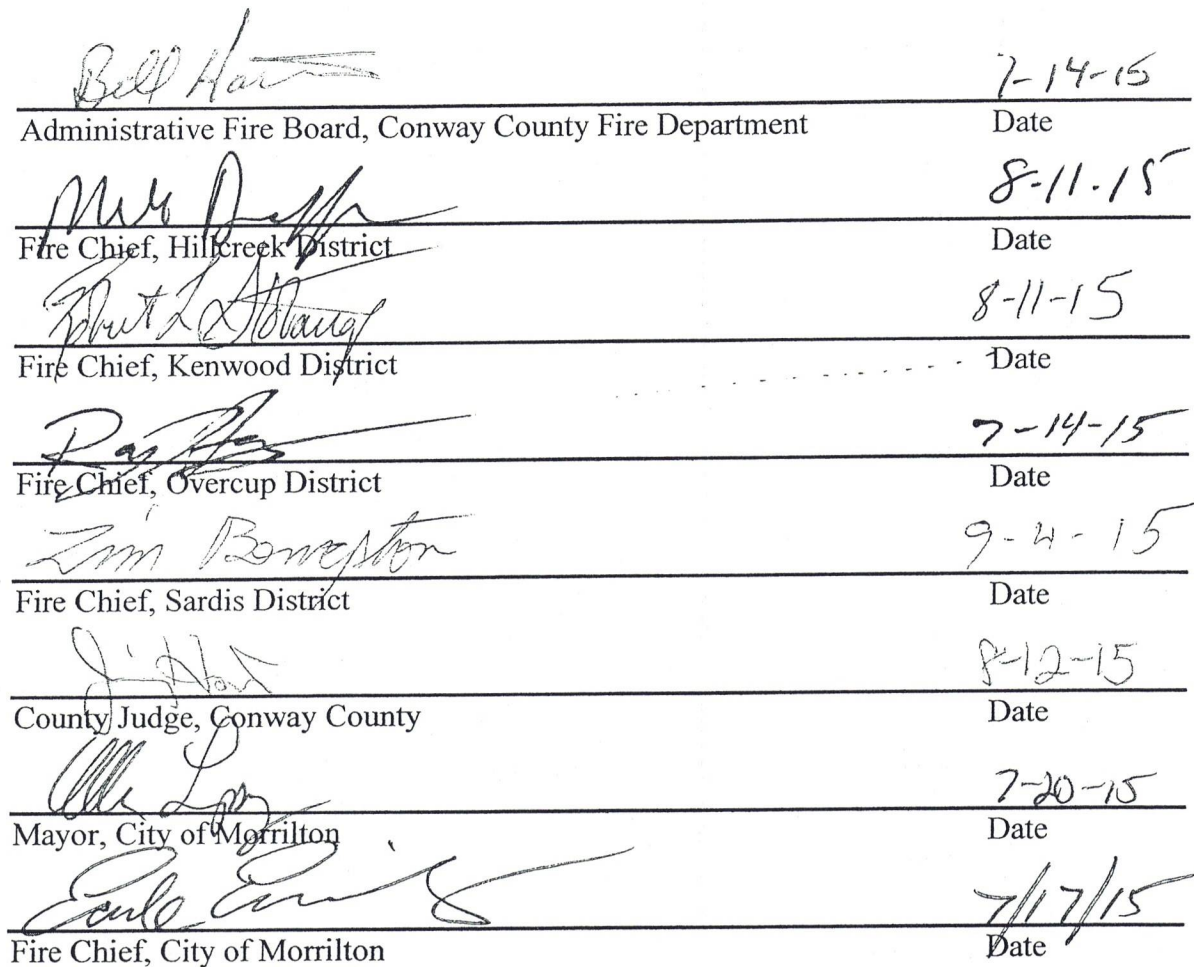 Bill Hart 7-14-15
Administrative Fire Board, Conway County Fire Department Date
8-11-15
Fire Chief, Hillcreek District Date
Robert L Stobaugh 8-11-15
Fire Chief, Kenwood District Date
7-14-15
Fire Chief, Overcup District Date
9-4-15
Fire Chief, Sardis District Date
Jim Hart 8-12-15
County Judge, Conway County Date
7-20-15
Mayor, City of Morrilton Date
7/17/15
Fire Chief, City of Morrilton Date